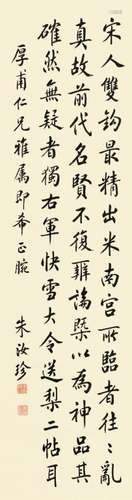 宋人雙鈎最精出米南宮所臨者往々亂
真故前代名賢不復辨論槩以為神品其
確然無疑者獨右軍快雪大令送梨二帖耳
厚甫仁兄雅屬即希正腕
朱汝珍